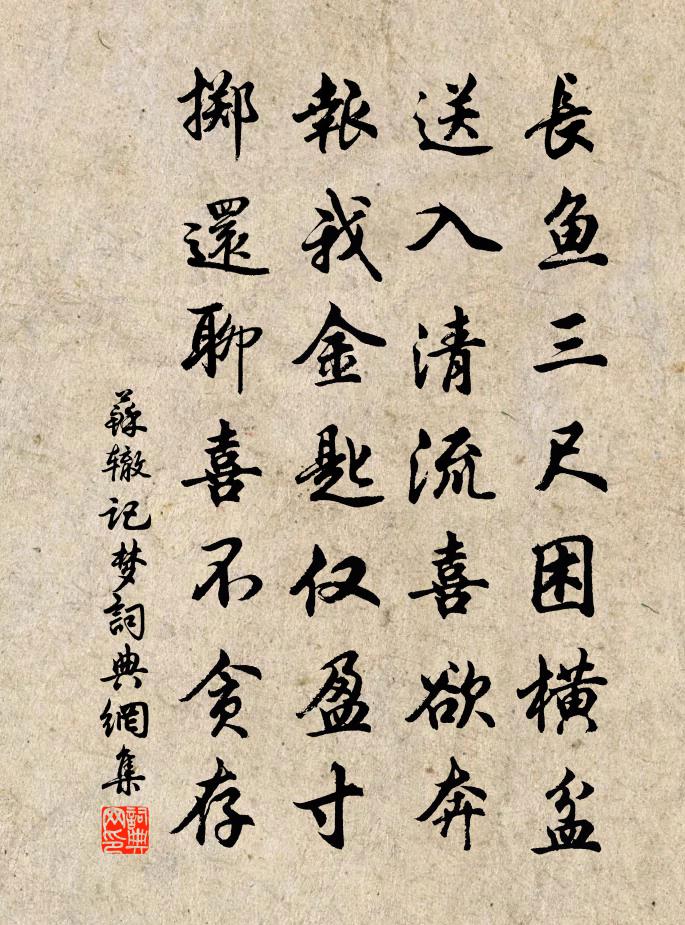 長鱼三尺困橫盆
送入清流喜欲奔
報我金匙仅盈寸
擲還聊喜不貪存
蘇辙记梦詞典網集
詞典網印